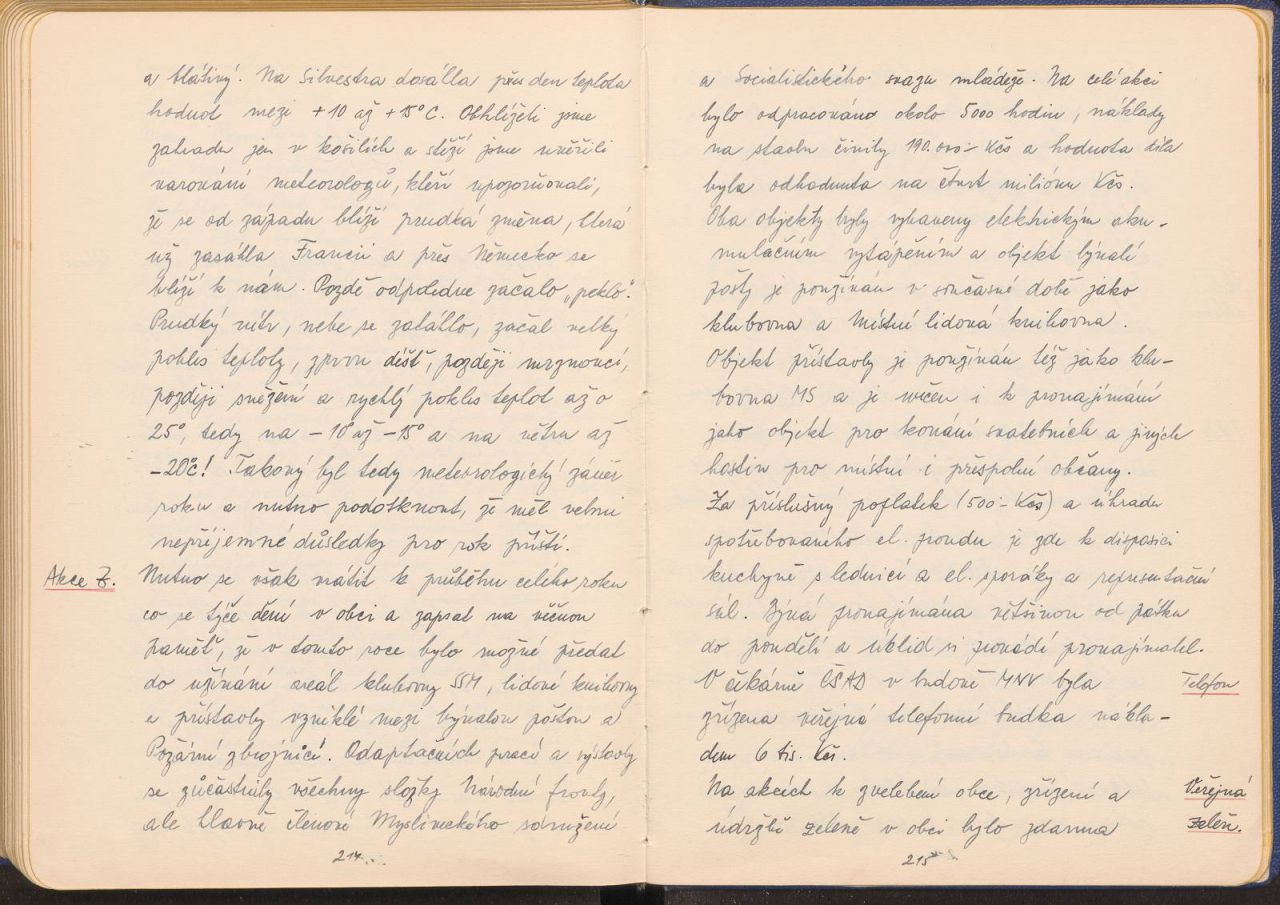 a blátivý. Na Silvestra dosáhla přes den teplota
hodnot mezi +10 až +15°C. Obhlíželi jsme
zahradu jen v košilích a stěží jsme uvěřili
varování meteorologů, kteří upozorňovali,
že se od západu blíží prudká změna, která
už zasáhla Francii a přes Německo se
blíží k nám. Pozdě odpoledne začalo „peklo“.
Prudký vítr, nebe se zatáhlo, začal velký
pokles teploty, zprvu déšť, později mrznoucí,
později sněžení a rychlý pokles teplot až o
25°, tedy na -10 až -15° a na větru až
-20°C! Takový byl tedy meteorologický závěr
roku a nutno podotknout, že měl velmi
nepříjemné důsledky pro rok příští.
Akce Z.
Nutno se však vrátit k průběhu celého roku
co se týče dění v obci a zapsat na věčnou
paměť, že v tomto roce bylo možné předat
do užívání areál klubovny SSM, lidové knihovny
a přístavby vzniklé mezi bývalou poštou a
Požární zbrojnicí. Adaptačních prací a výstavby
se zúčastnily všechny složky Národní fronty,
ale hlavně členové Mysliveckého sdružení
214
a Socialistického svazu mládeže. Na celé akci
bylo odpracováno okolo 5000 hodin, náklady
na stavbu činily 190.000- Kčs a hodnota díla
byla odhadnuta na čtvrt miliónu Kčs.
Oba objekty byly vybaveny elektrickým aku-
mulačním vytápěním a objekt bývalé
pošty je používán v současné době jako
klubovna a Místní lidová knihovna.
Objekt přístavby je používán též jako klu-
bovna MS a je určen i k pronajímání
jako objekt pro konání svatebních a jiných
hostin pro místní i přespolní občany.
Za příslušný poplatek (500- Kčs) a úhradu
spotřebovaného el. proudu je zde k disposici
kuchyně s lednicí a el. sporáky a representační
sál. Bývá pronajímána většinou od pátku
do pondělí a úklid si provádí pronajímatel.
V čekárně ČSAD v budově MNV byla
Telefon
zřízena veřejná telefonní budka nákla-
dem 6 tis. Kčs.
Na akcích k zvelebení obce, zřízení a
Veřejná
údržbě zeleně v obci bylo zdarma
zeleň.
215